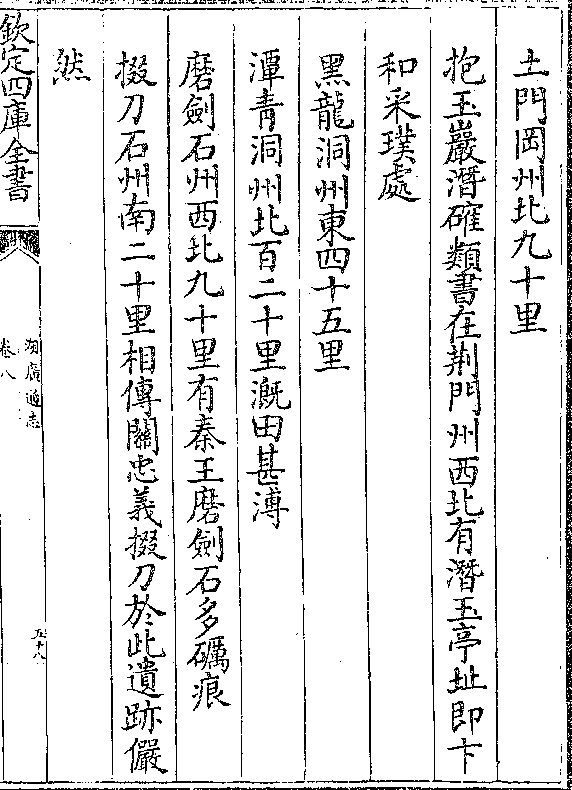 土門岡州北九十里
抱玉巖潛確類書在荆門州西北有潛玉亭址即卞
和采璞處
黑龍洞州東四十五里
潭青洞州北百二十里溉田甚溥
磨劍石州西北九十里有秦王磨劍石多礪痕
掇刀石州南二十里相傳關忠義掇刀於此遺跡儼
然
欽定四庫全書
湖廣通志
卷八
五十八